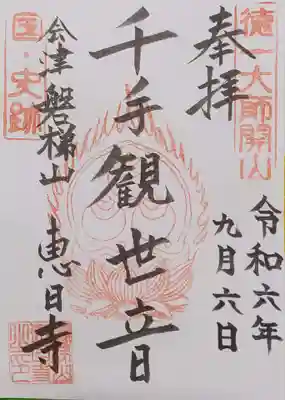 徳一大師開山
奉拝
令和六年
九月六日
千手観世音
会津磐梯山 恵日寺
国・史跡